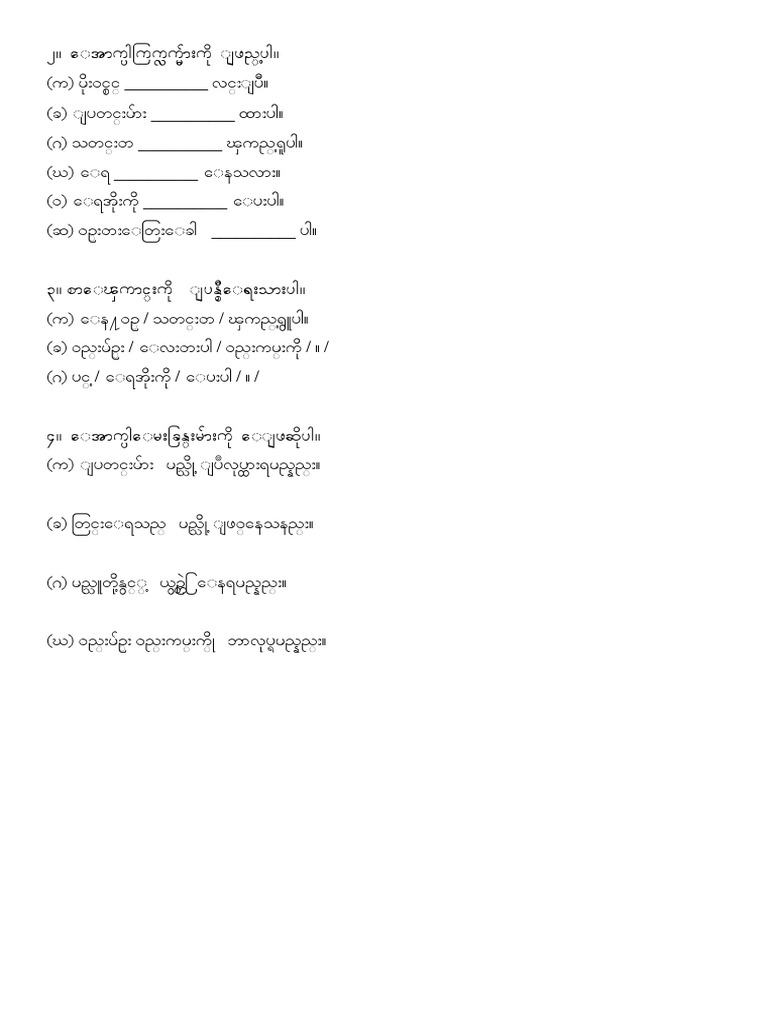 ၂။ အောက်ပါကြက်လက်များကို ဖြည့်ပါ။
(က) ပိုးဝင်စင် ____________ လင်းပြီ။
(ခ) ပြတင်းမ်ား ____________ ထားပါ။
(ဂ) သတင်းတ ____________ ၾကည့်ရူပါ။
(ဃ) ရေ ____________ နေသလား။
(ဝ) ရေအိုးကို ____________ ပေးပါ။
(ဆ) ဝဥးတးတြေးခေါ ____________ ပါ။
၃။ စာကြောင်းကို ပြန်စီရေးသားပါ။
(က) နေ႔ဝဥ / သတင်းတ / ၾကည့်ရွူပါ။
(ခ) ဝည်းပ်ဥး / လေးတးပါ / ဝည်းကမ်းကို / ။ /
(ဂ) ပင့် / ရေအိုးကို / ပေးပါ / ။ /
၄။ အောက်ပါမေးခြန်းများကို ဖြေဆိုပါ။
(က) ပြတင်းပ်ား ပည်သို့ ပြီလုပ်ထားရပည်နည်း။
(ခ) တြင်းရေသည် ပည်သို့ ဖြဝ်နေသနည်း။
(ဂ) ပည်သူတို့နွင့် ယွဥ်တြဲနေရပည်နည်း။
(ဃ) ဝည်းပ်ဥး ဝည်းကပ်းကို ဘာလုပ်ရပည်နည်း။